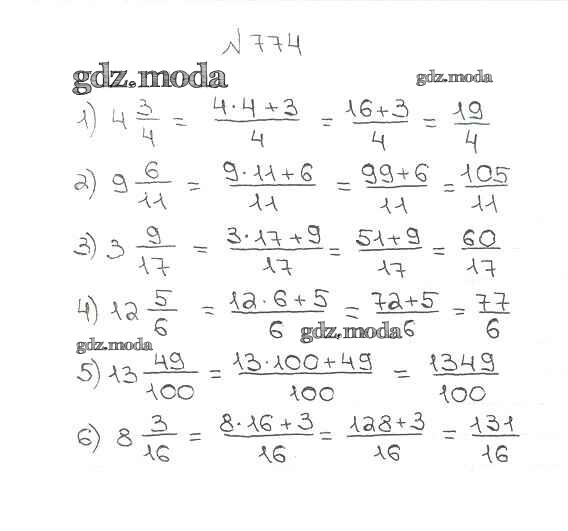 №774
gdz.moda gdz.moda
1) 4 3/4 = (4·4+3)/4 = (16+3)/4 = 19/4
2) 9 6/11 = (9·11+6)/11 = (99+6)/11 = 105/11
3) 3 9/17 = (3·17+9)/17 = (51+9)/17 = 60/17
4) 12 5/6 = (12·6+5)/6 = (72+5)/6 = 77/6
gdz.moda
gdz.moda
5) 13 49/100 = (13·100+49)/100 = 1349/100
6) 8 3/16 = (8·16+3)/16 = (128+3)/16 = 131/16